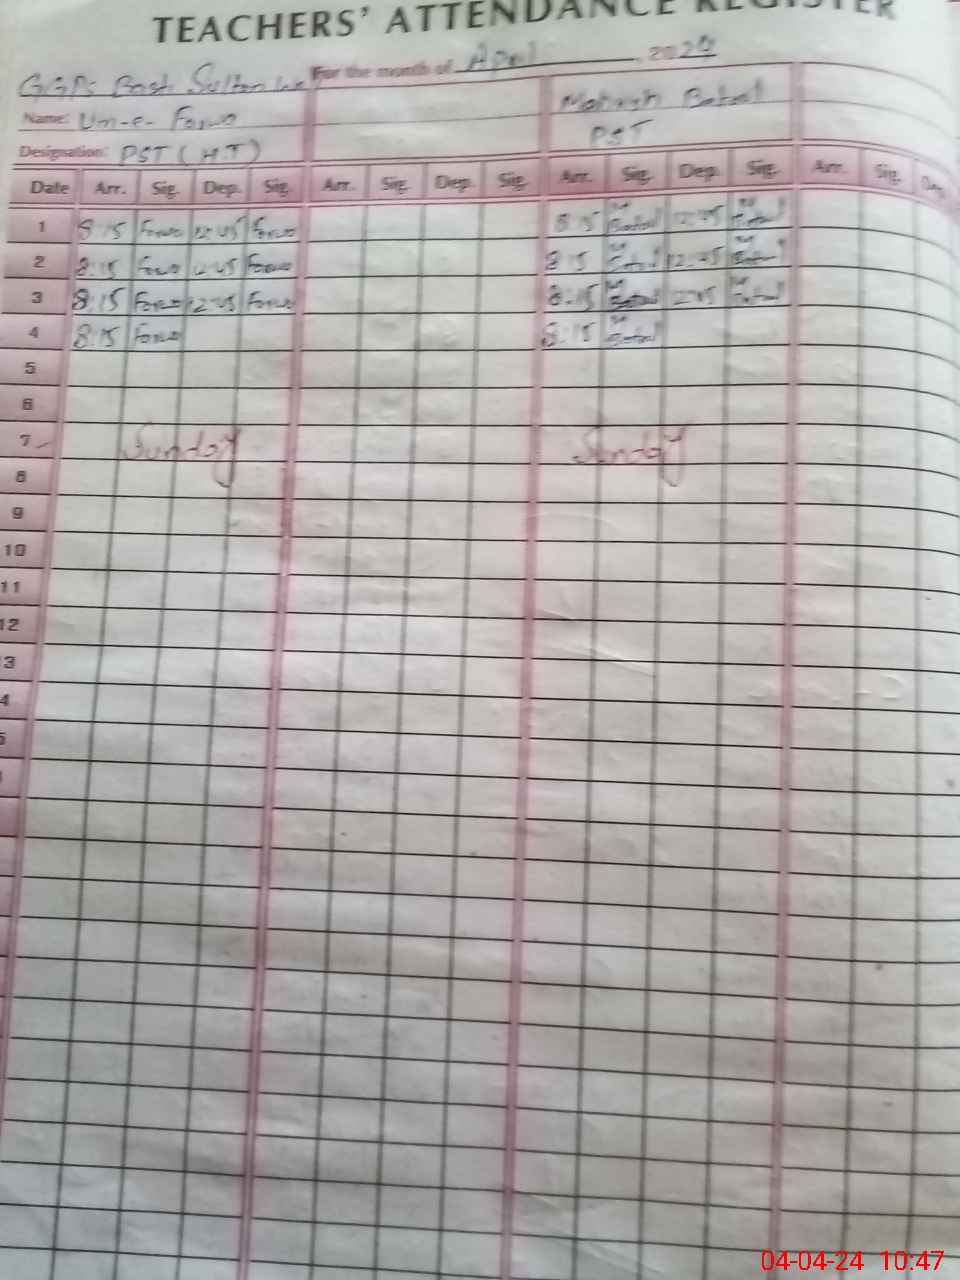 TEACHERS' ATTENDANCE REGISTER
GGPS Basti Sultan For the month of April, 2024
Name: Um-e- Farwa Mahwish Batool
Designation: PST (H.T) PST
Date Arr. Sig. Dep. Sig. Arr. Sig. Dep. Sig. Arr. Sig. Dep. Sig. Arr. Sig. Dep.
1 8:15 Farwa 12:45 Farwa 8:15 Batool 12:45 Batool
2 8:15 Farwa 12:45 Farwa 8:15 Batool 12:45 Batool
3 8:15 Farwa 12:45 Farwa 8:15 Batool 12:45 Batool
4 8:15 Farwa 8:15 Batool
5
6
7 Sunday Sunday
8
9
10
11
12
3
4
5
04-04-24 10:47